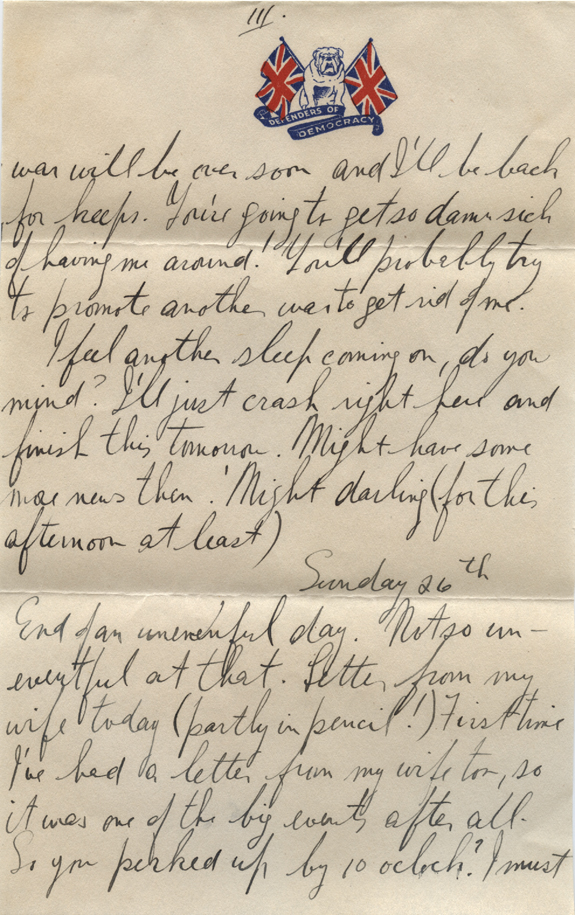 III.
DEFENDERS OF
DEMOCRACY
war will be over soon and I'll be back
for keeps. You're going to get so damn sick
of having me around! You'll probably try
to promote another war to get rid of me.
I feel another sleep coming on, do you
mind? I'll just crash right here and
finish this tomorrow. Might have some
more news then. 'Night darling (for this
afternoon at least)
Sunday 26th
End of an uneventful day. Not so un-
eventful at that. Letter from my
wife today (partly in pencil!) First time
I've had a letter from my wife too, so
it was one of the big events after all.
So you perked up by 10 oclock? I must